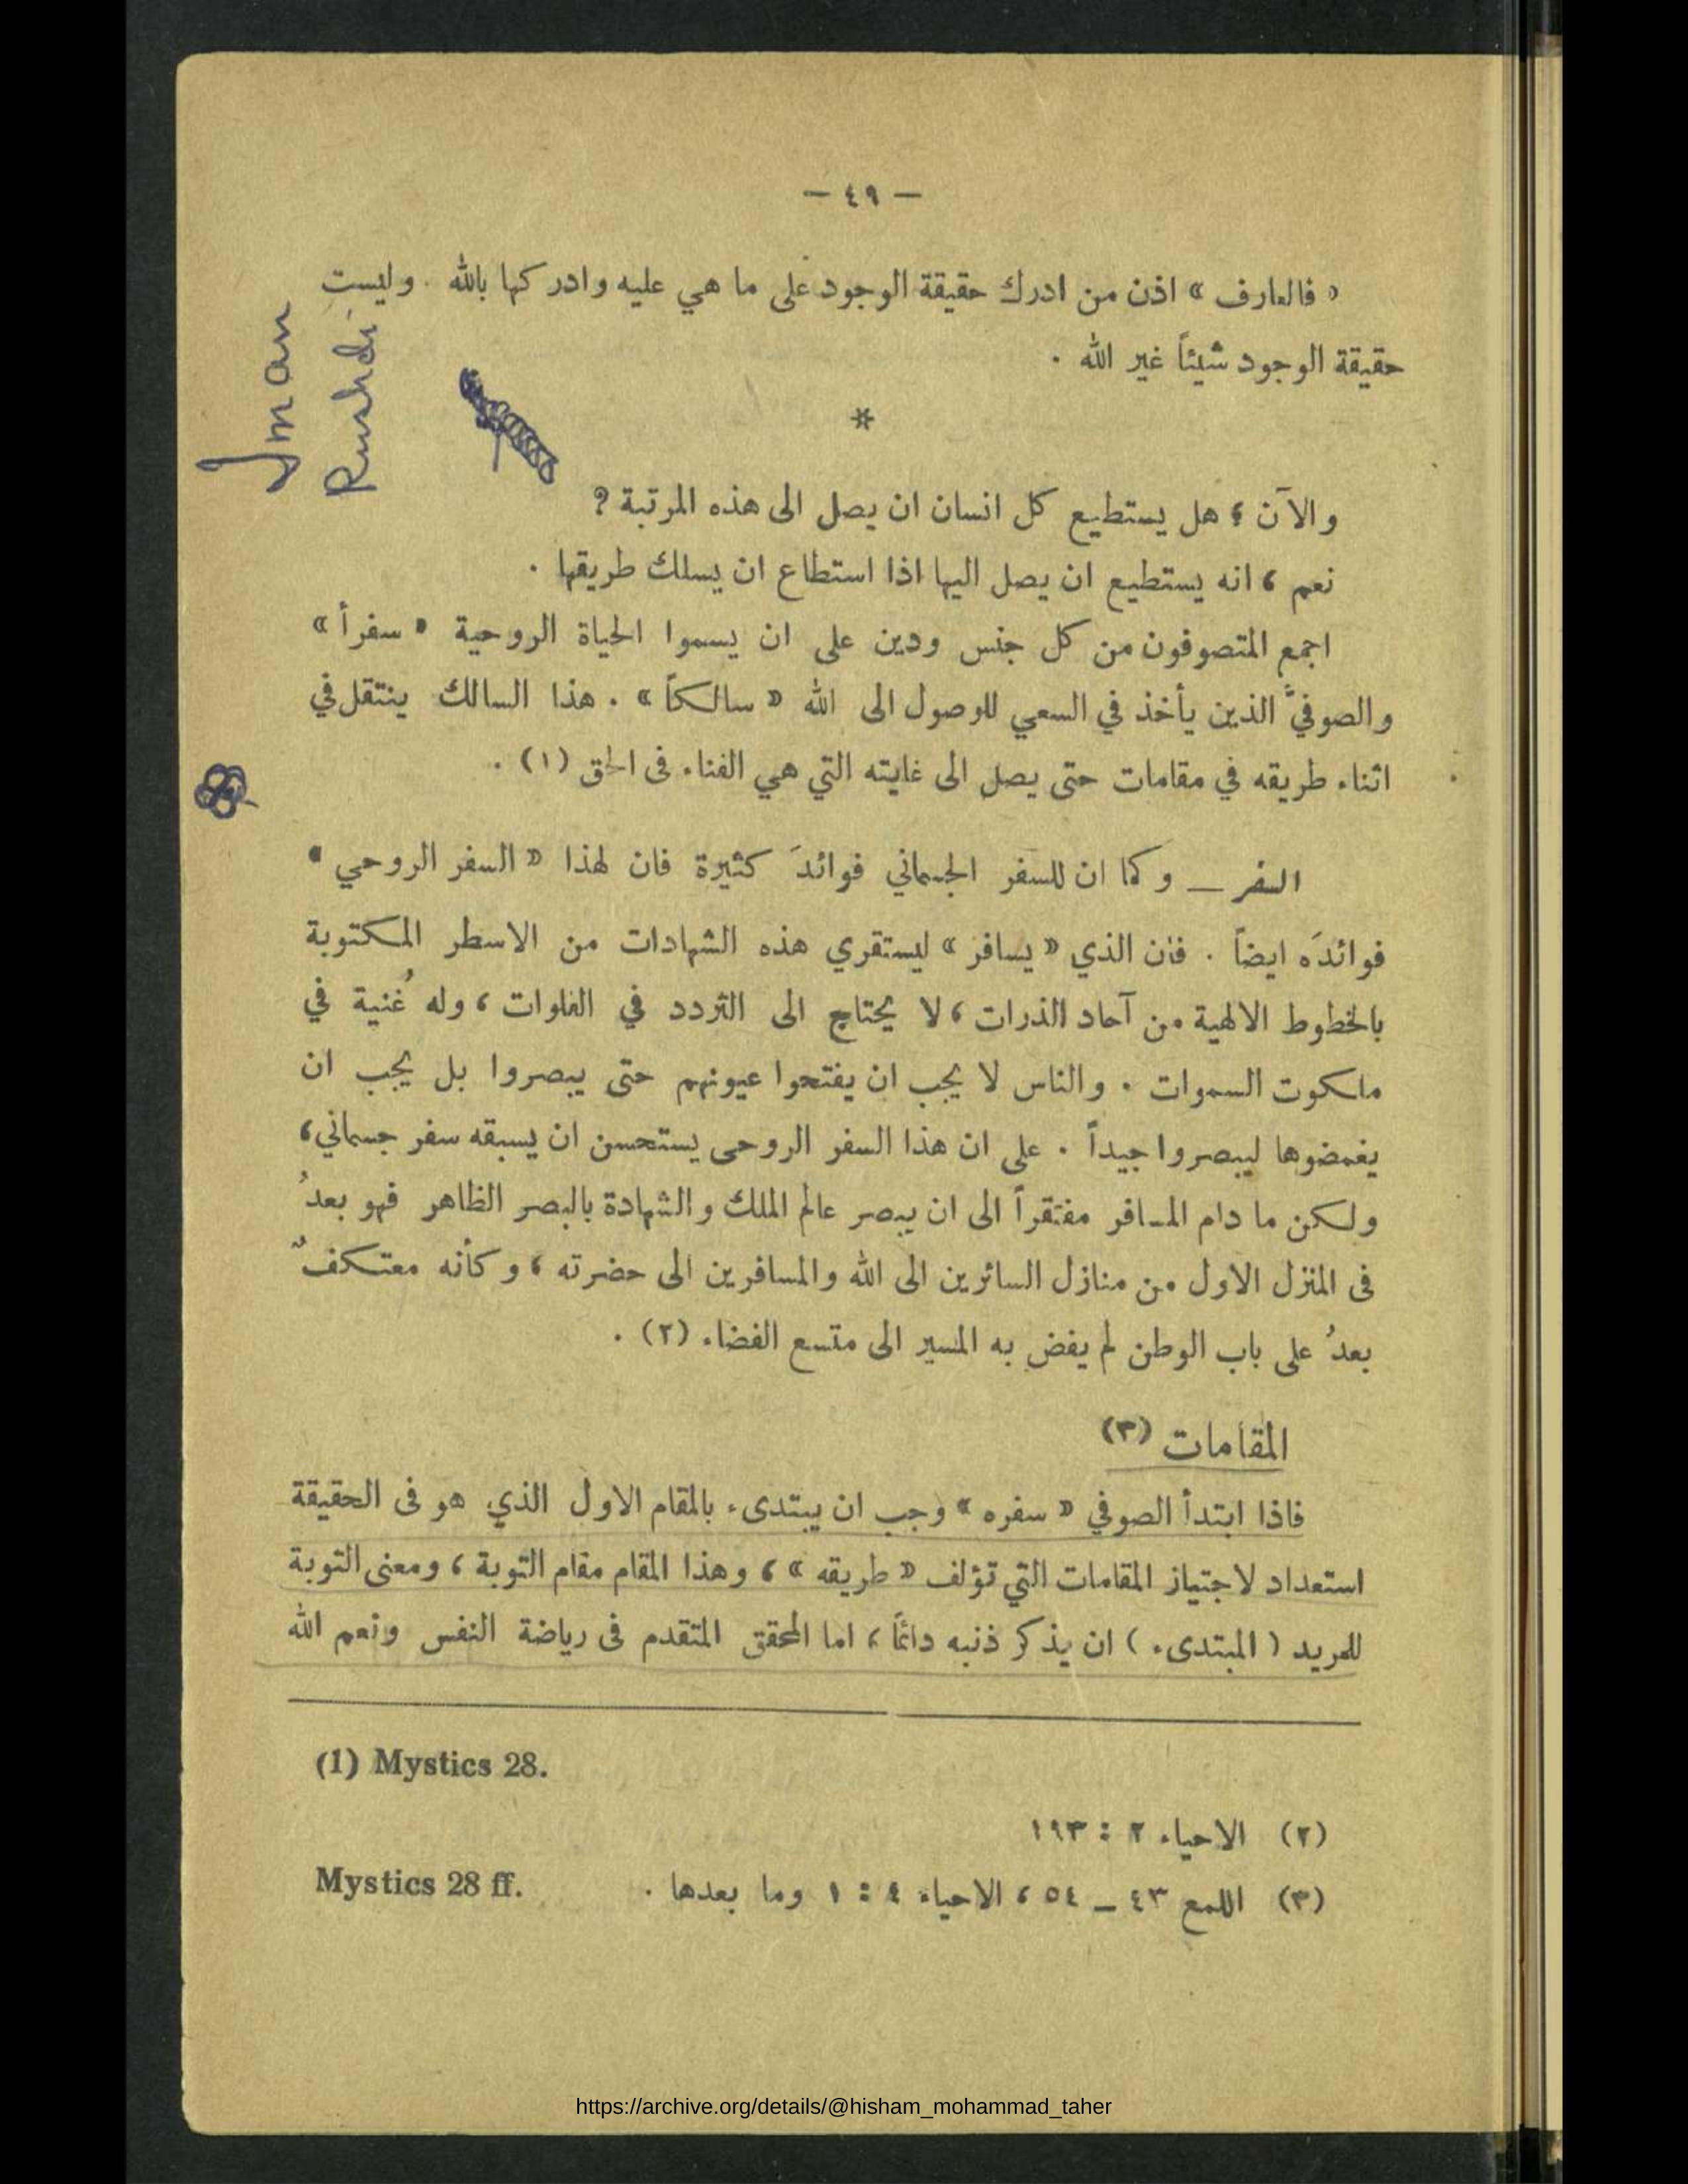 — ٤٩ —
« فالعارف » اذن من ادرك حقيقة الوجود على ما هي عليه وادركها بالله . وليست
حقيقة الوجود شيئاً غير الله .
*
والآن ؛ هل يستطيع كل انسان ان يصل الى هذه المرتبة ?
نعم ، انه يستطيع ان يصل اليها اذا استطاع ان يسلك طريقها .
اجمع المتصوفون من كل جنس ودين على ان يسموا الحياة الروحية « سفراً »
والصوفيَّ الذين يأخذ في السعي للوصول الى الله « سالكاً » . هذا السالك ينتقل في
اثناء طريقه في مقامات حتى يصل الى غايته التي هي الفناء فى الحق (١) .
السفر — وكما ان للسفر الجسماني فوائدَ كثيرة فان لهذا « السفر الروحي »
فوائدَه ايضاً . فان الذي « يسافر » ليستقري هذه الشهادات من الاسطر المكتوبة
بالخطوط الالهية من آحاد الذرات ، لا يحتاج الى التردد في الفلوات ، وله غُنية في
ملكوت السموات . والناس لا يجب ان يفتحوا عيونهم حتى يبصروا بل يجب ان
يغمضوها ليبصروا جيداً . على ان هذا السفر الروحى يستحسن ان يسبقه سفر جسماني،
ولكن ما دام المسافر مفتقراً الى ان يبصر عالم الملك والشهادة بالبصر الظاهر فهو بعدُ
فى المنزل الاول من منازل السائرين الى الله والمسافرين الى حضرته ، وكأنه معتكفٌ
بعدُ على باب الوطن لم يفض به المسير الى متسع الفضاء (٢) .
المقامات (٣)
فاذا ابتدأ الصوفي « سفره » وجب ان يبتدىء بالمقام الاول الذي هو فى الحقيقة
استعداد لاجتياز المقامات التي تؤلف « طريقه » ، وهذا المقام مقام التوبة ، ومعنى التوبة
للمريد ( المبتدىء ) ان يذكر ذنبه دائماً ، اما المحقق المتقدم فى رياضة النفس ونعم الله
(1) Mystics 28.
(٢) الاحياء ٢ : ١٩٣
(٣) اللمع ٤٣ — ٥٤ ، الاحياء ٤ : ١ وما بعدها . Mystics 28 ff.
Iman
Rushdi
https://archive.org/details/@hisham_mohammad_taher